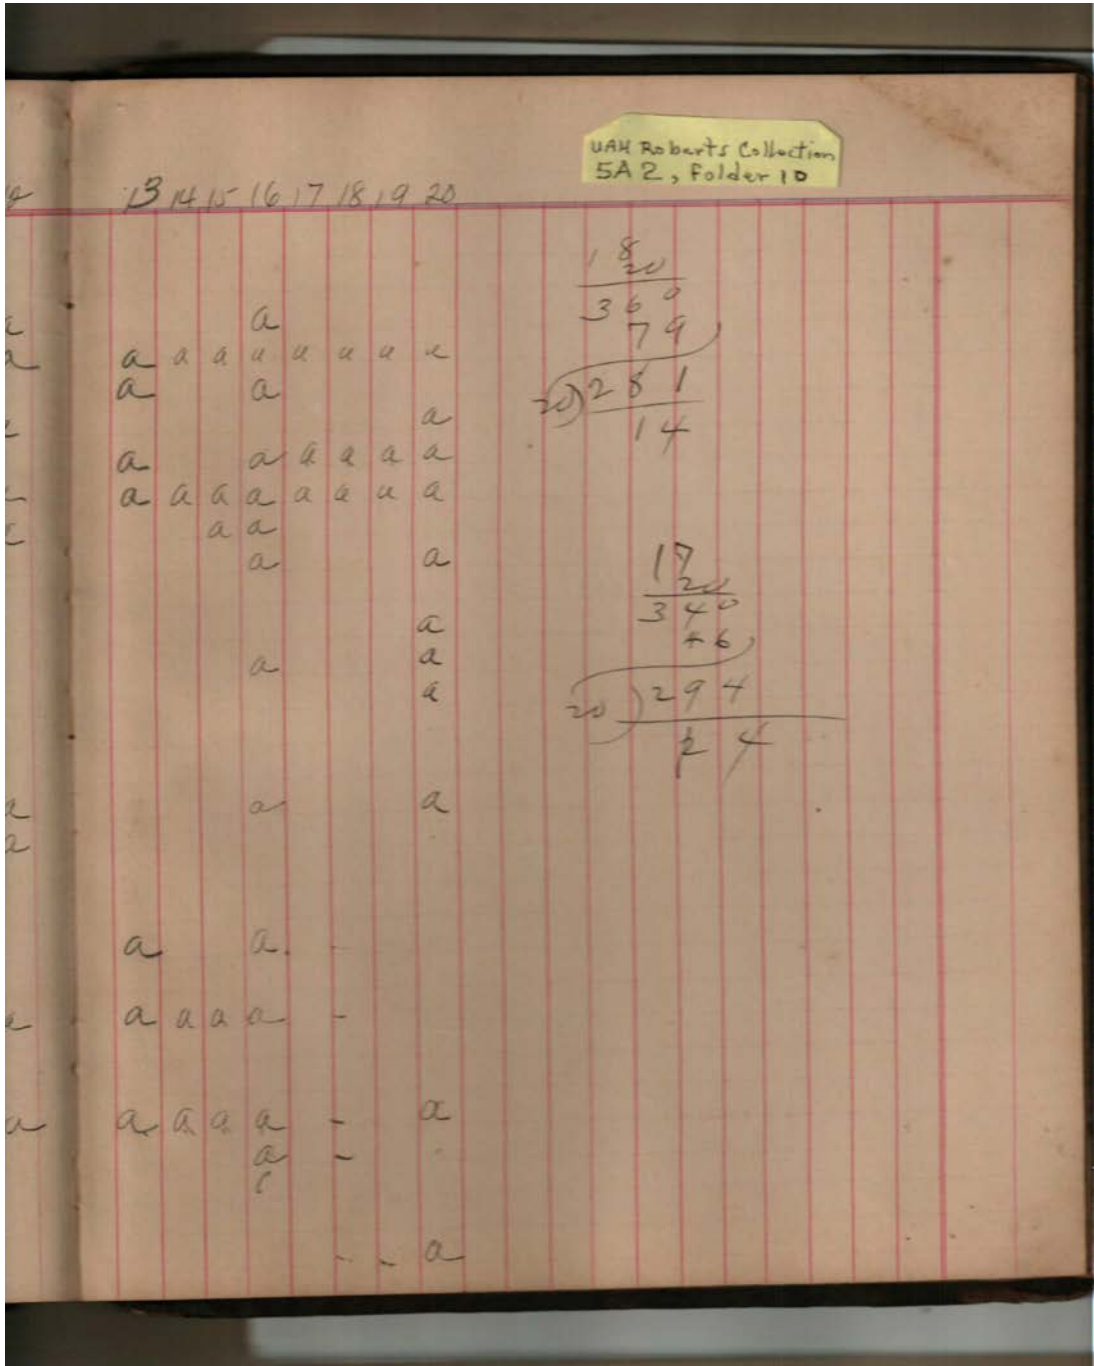 UAH Roberts Collection
5A2, Folder 10
13 14 15 16 17 18 19 20
a
a a a a a a a a
a a
a
a a a a a a
a a a a a a a a
a a
a a
a
a a
a
a a
a a. -
a a a a -
a a a a - a
a -
- - a
18
20
360
79
20)281
14
17
20
340
46
20)294
14